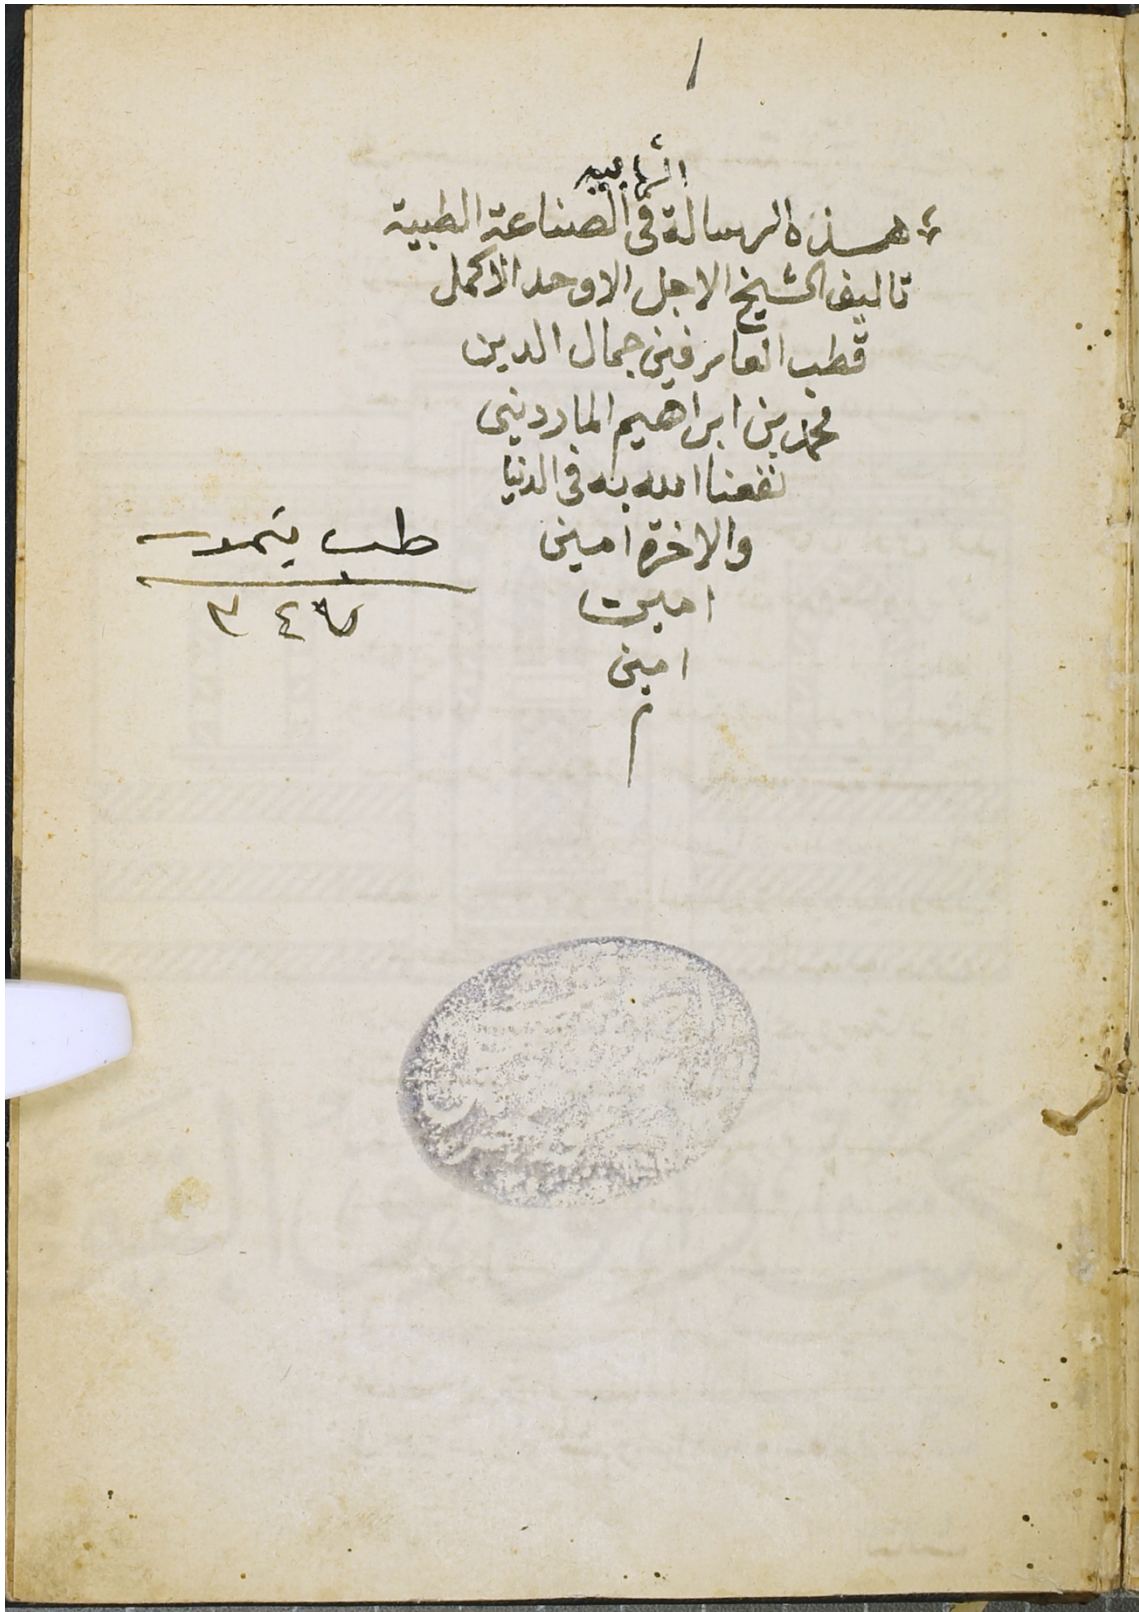 ١
الشهابيه
هذه الرسالة فى الصناعة الطبية
تاليف الشيخ الاجل الاوحد الاكمل
قطب العارفين جمال الدين
محمد بن ابراهيم الماردينى
نفعنا الله به فى الدنيا
والاخرة امين
امين
امين
م
طب تيمور
٣٤٧